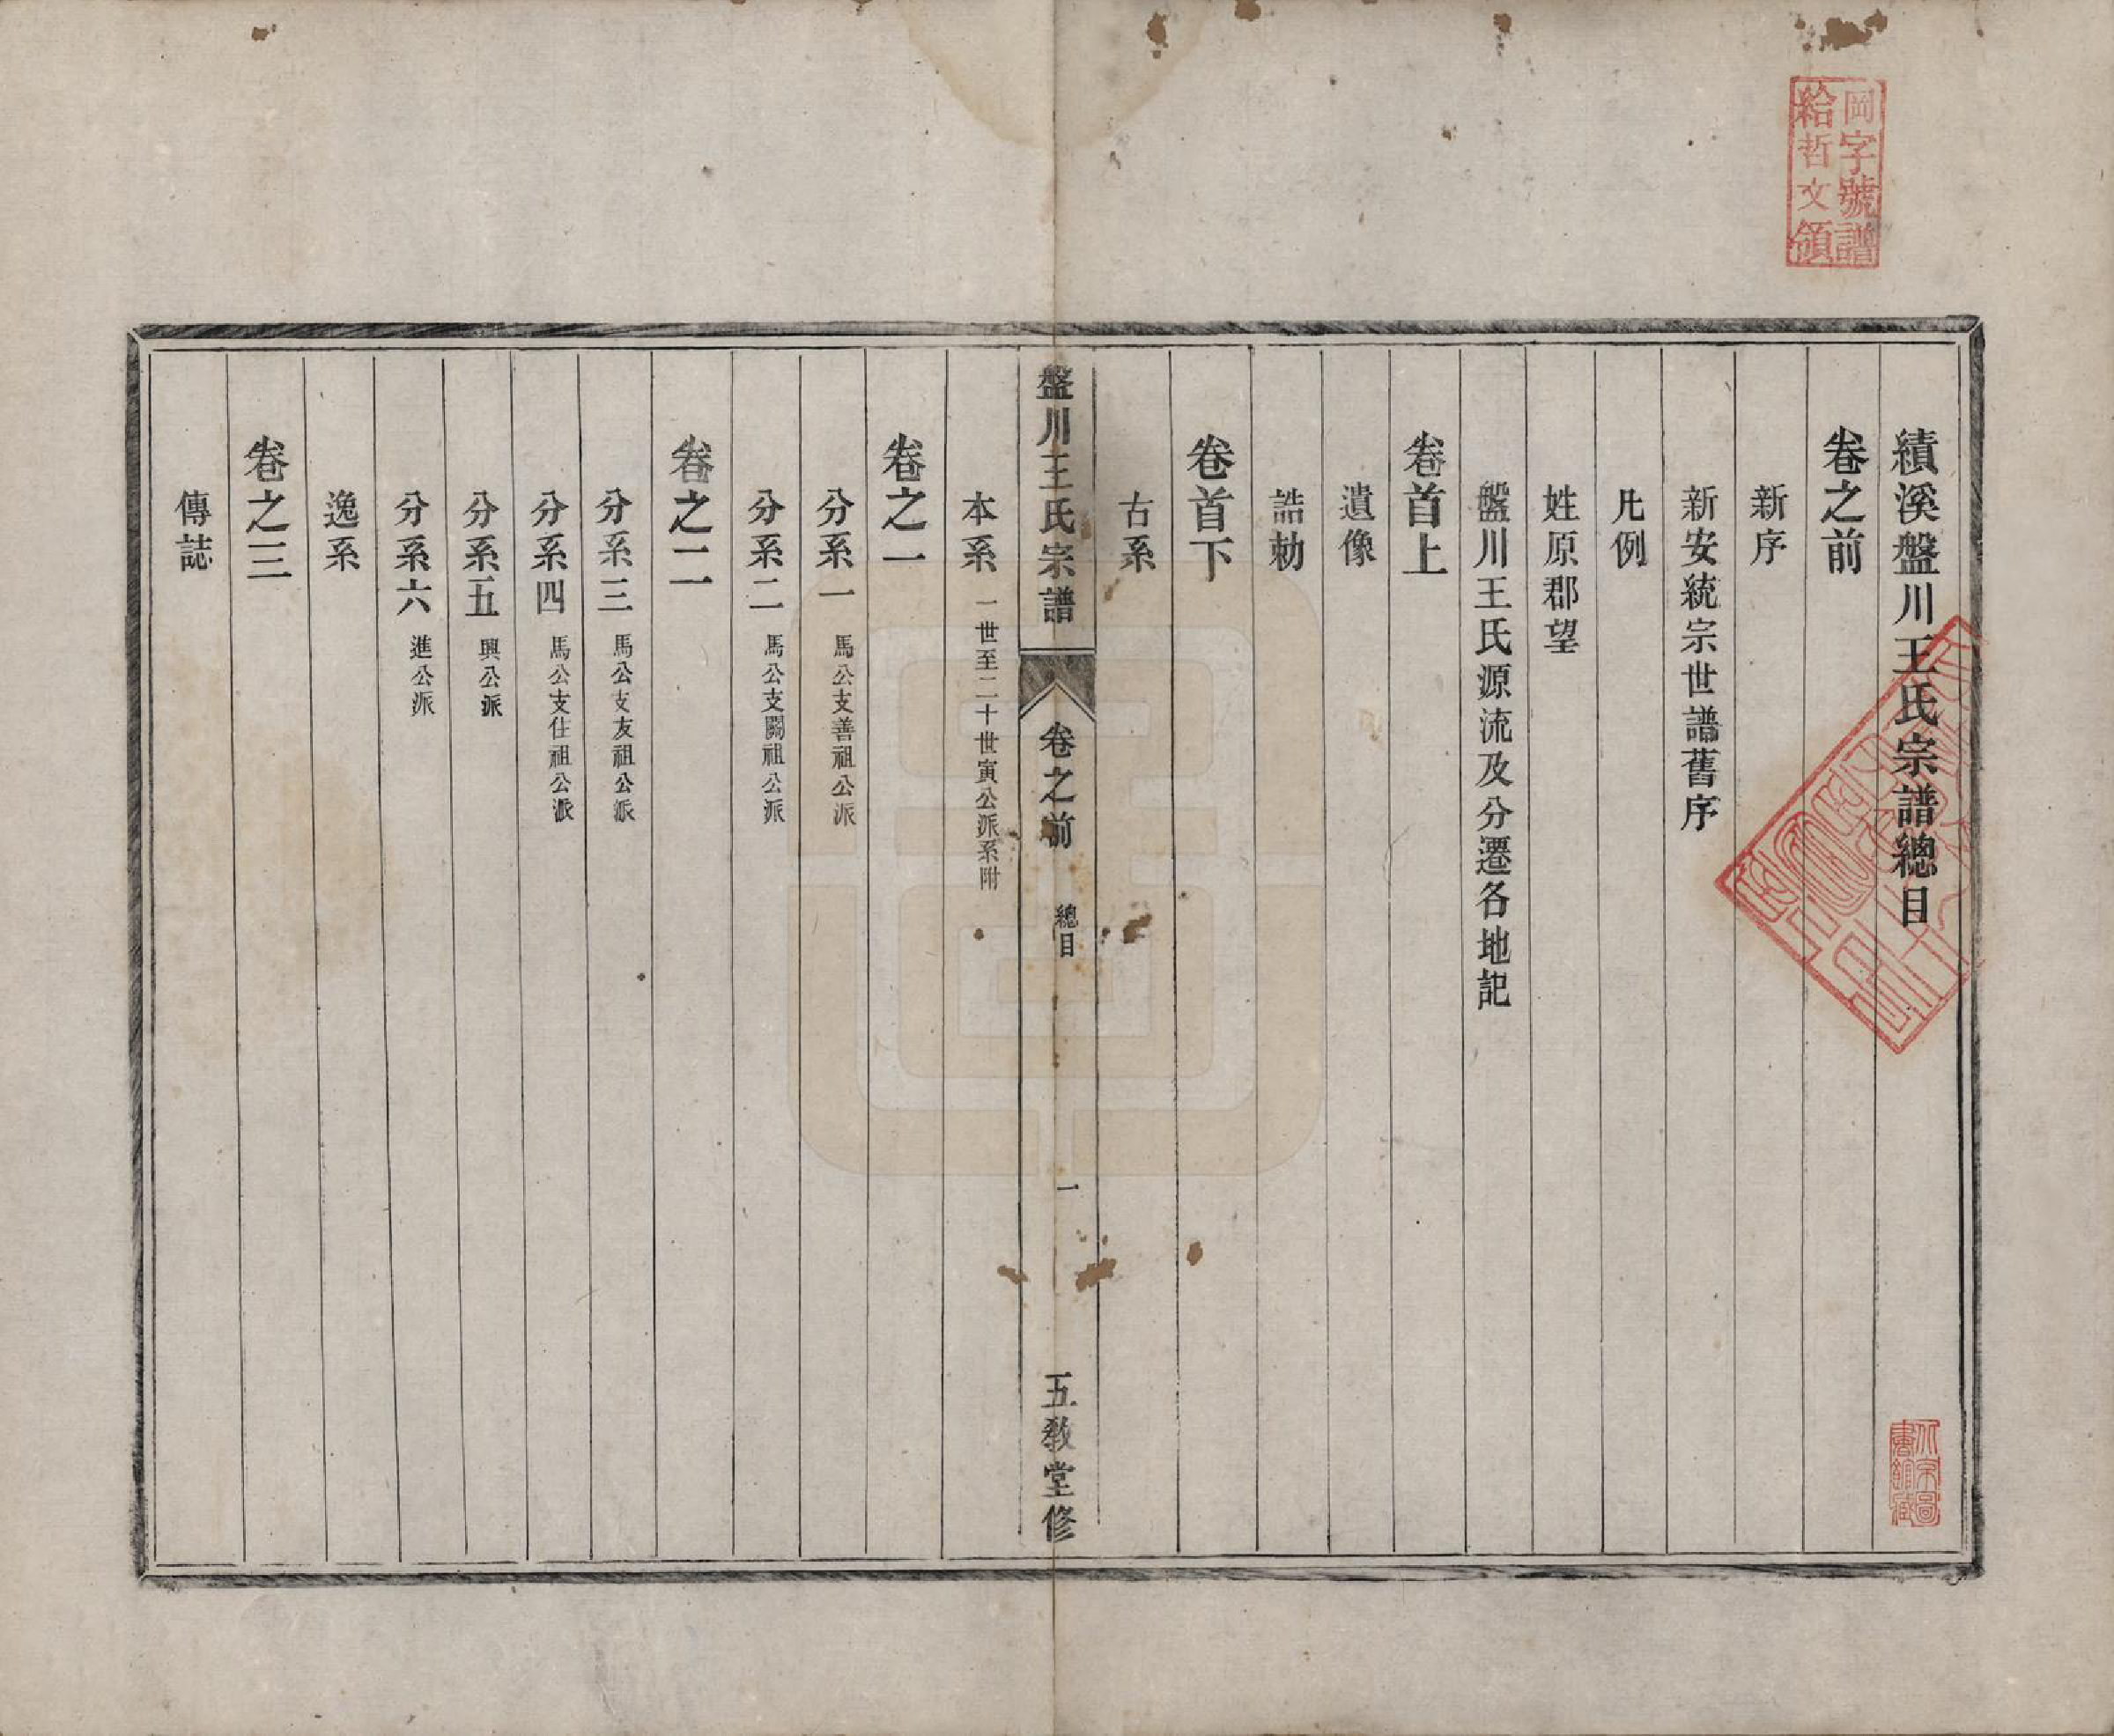 岡字號譜
給哲文領
績溪盤川王氏宗譜總目
卷之前
新序
新安統宗世譜舊序
凡例
姓原郡望
盤川王氏源流及分遷各地記
卷首上
遺像
誥勅
卷首下
古系
盤川王氏宗譜 卷之前 總目 一 五教堂修
本系 一世至二十世寅公派系附
卷之一
分系一 馬公支善祖公派
分系二 馬公支關祖公派
卷之二
分系三 馬公支友祖公派
分系四 馬公支住祖公派
分系五 興公派
分系六 進公派
逸系
卷之三
傳誌